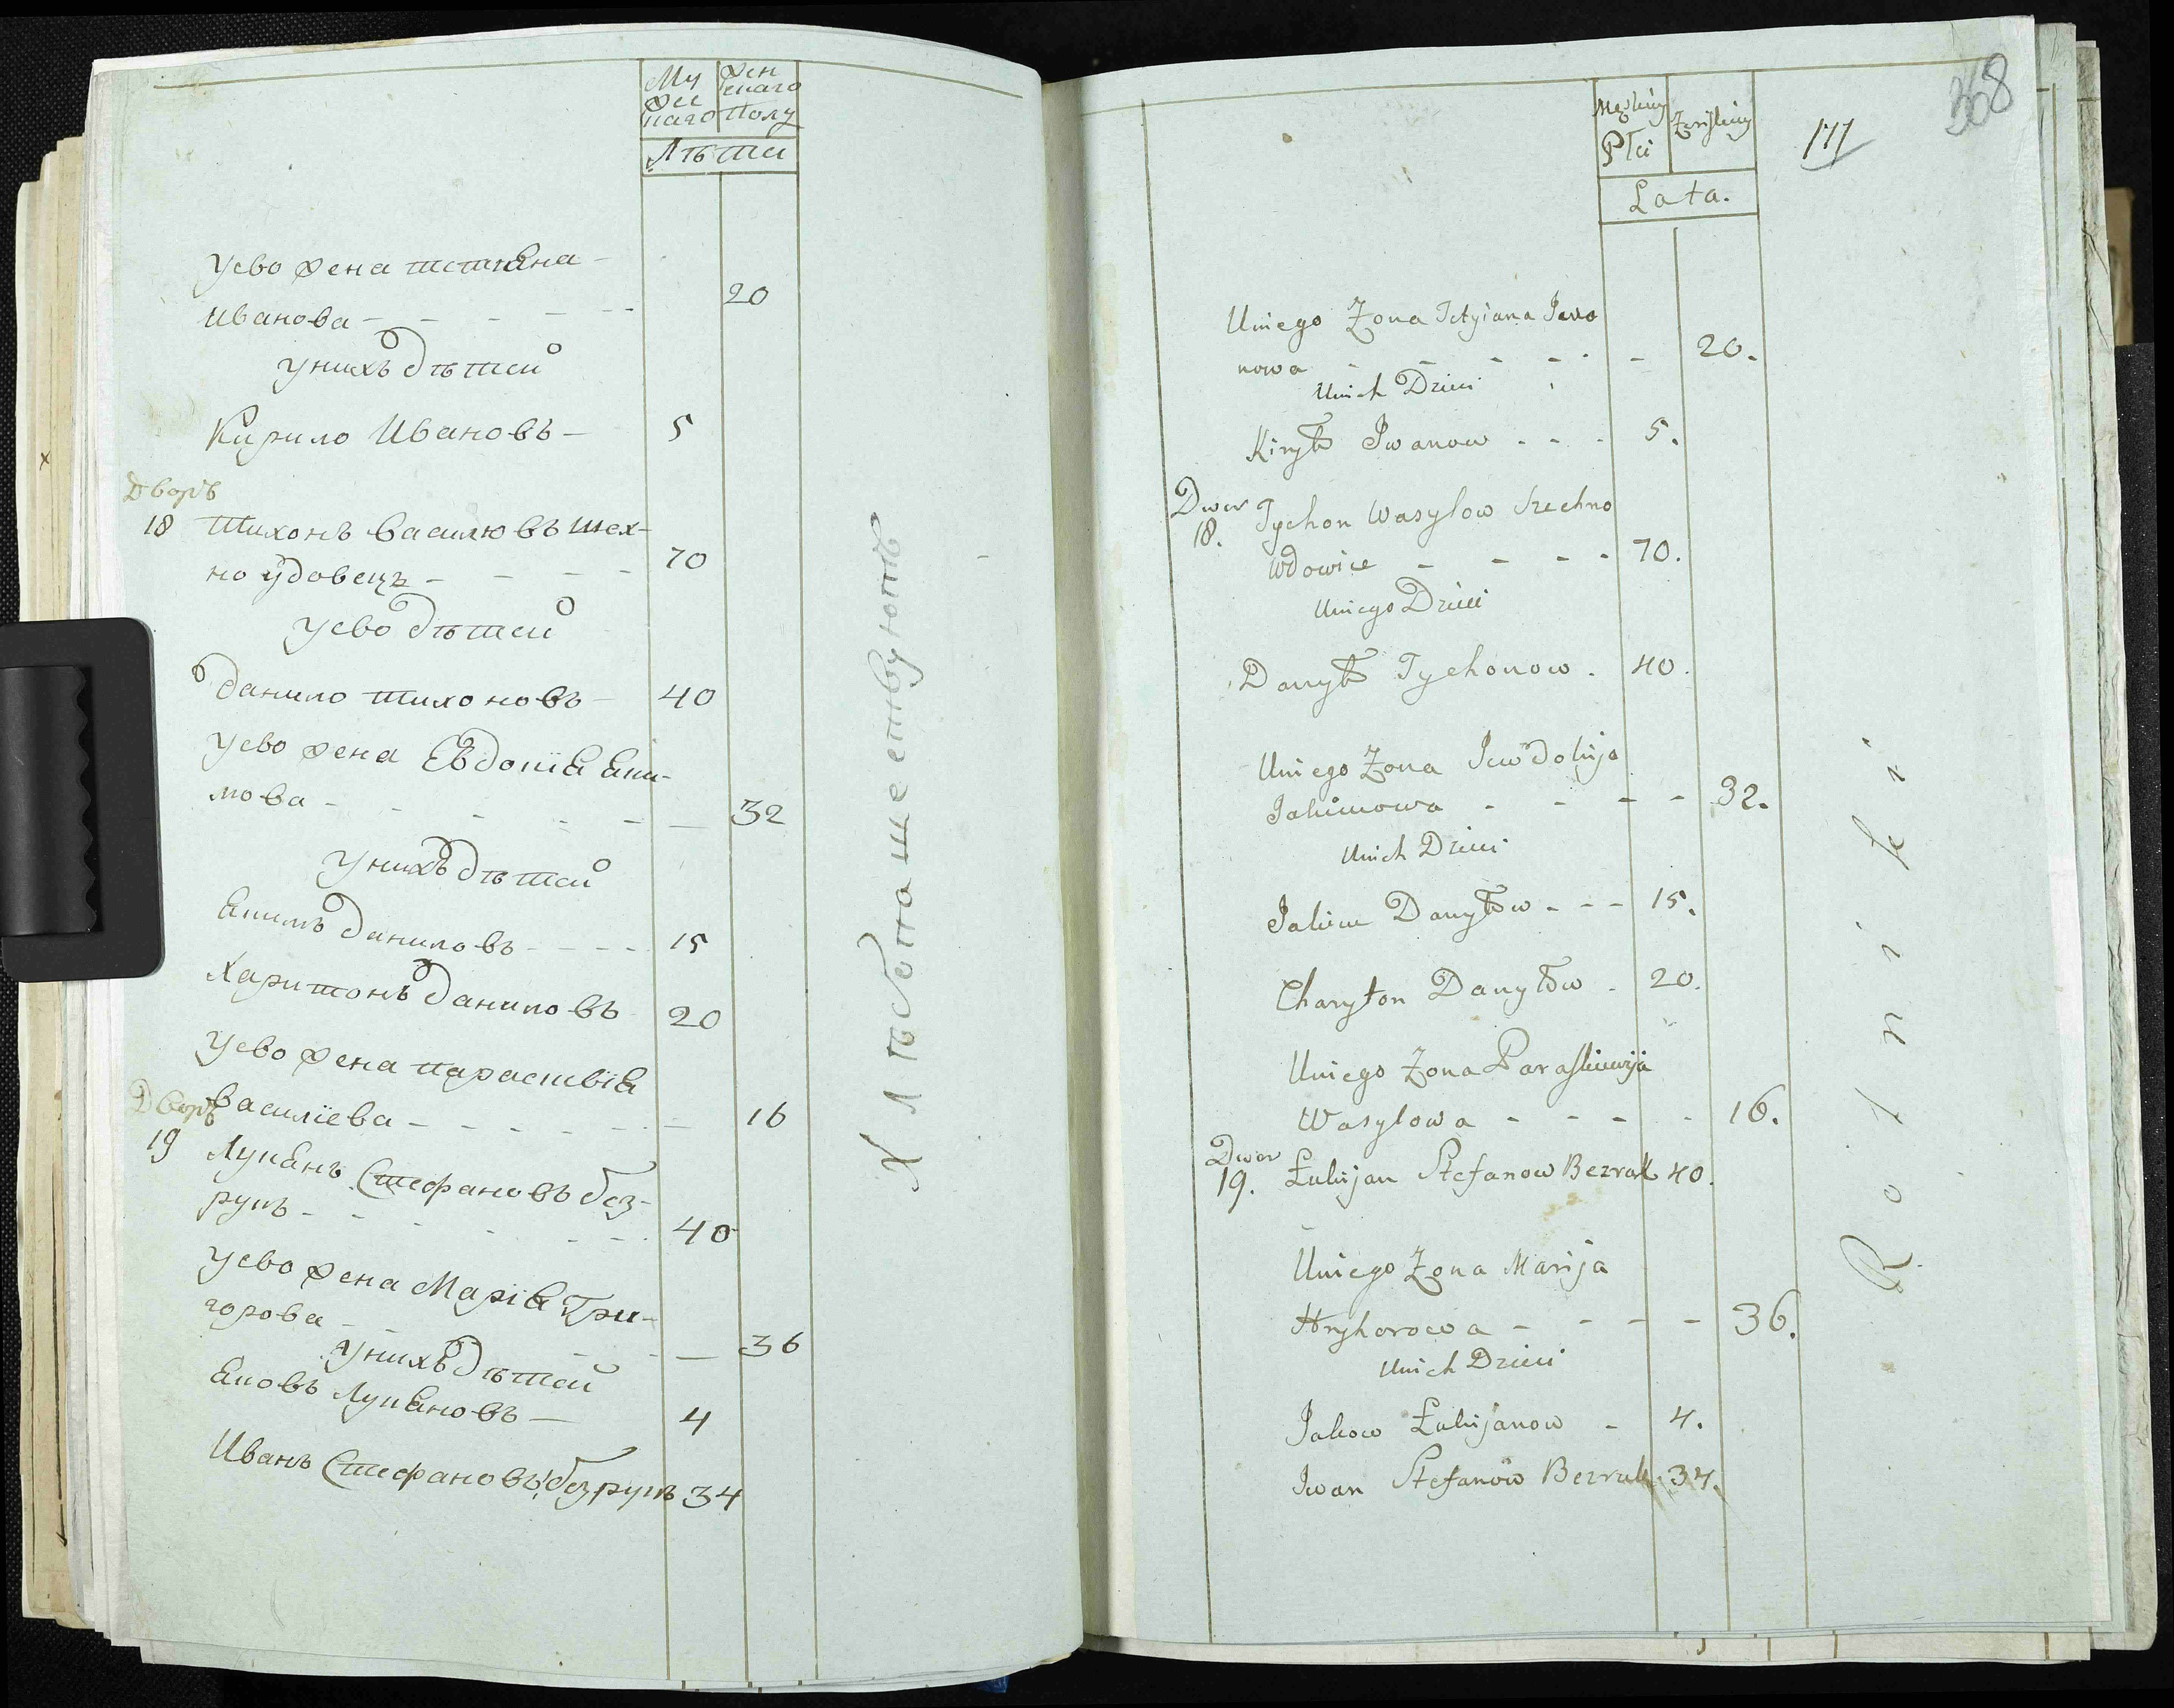 Му
же
скаго
Жен
скаго
Полу
Лѣта
Уево жена тетиана
Иванова
20
Унихъ дѣтей
Кирило Ивановъ
5
Дворъ
18 Тихонъ василювъ шех-
но удовецъ
70
Уево дѣтей
данило тихоновъ
40
Уево жена Евдокіа аки-
мова
32
Унихъ дѣтей
акимъ даниловъ
15
Харитонъ даниловъ
20
Уево жена параскевіа
василіева
16
Дворъ
19 Луканъ Стефановъ без-
рукъ
40
Уево жена Маріа Гри-
горова
36
Унихъ дѣтей
аковъ Лукановъ
4
Иванъ Стефановъ безрукъ 34
Хлѣбопашествуютъ
368
171
Męskiey
Płci
Żeńskiey
Lata.
Uniego Żona Tetyiana Iwa
nowa
20.
Unich Dzieci
Kiryło Iwanow
5.
Dwor
18. Tychon Wasylow Szechno
Wdowiec
70.
Uniego Dzieci
Danyło Tychonow
40.
Uniego Żona Iewdokija
Jakimowa
32.
Unich Dzieci
Jakim Danyłow
15.
Charyton Danyłow
20.
Uniego Żona Paraskiewija
Wasylowa
16.
Dwor
19. Łukijan Stefanow Bezruk 40.
Uniego Żona Marija
Hryhorowa
36.
Unich Dzieci
Jakow Łukijanow
4.
Iwan Stefanow Bezruk 34.
Rolniki